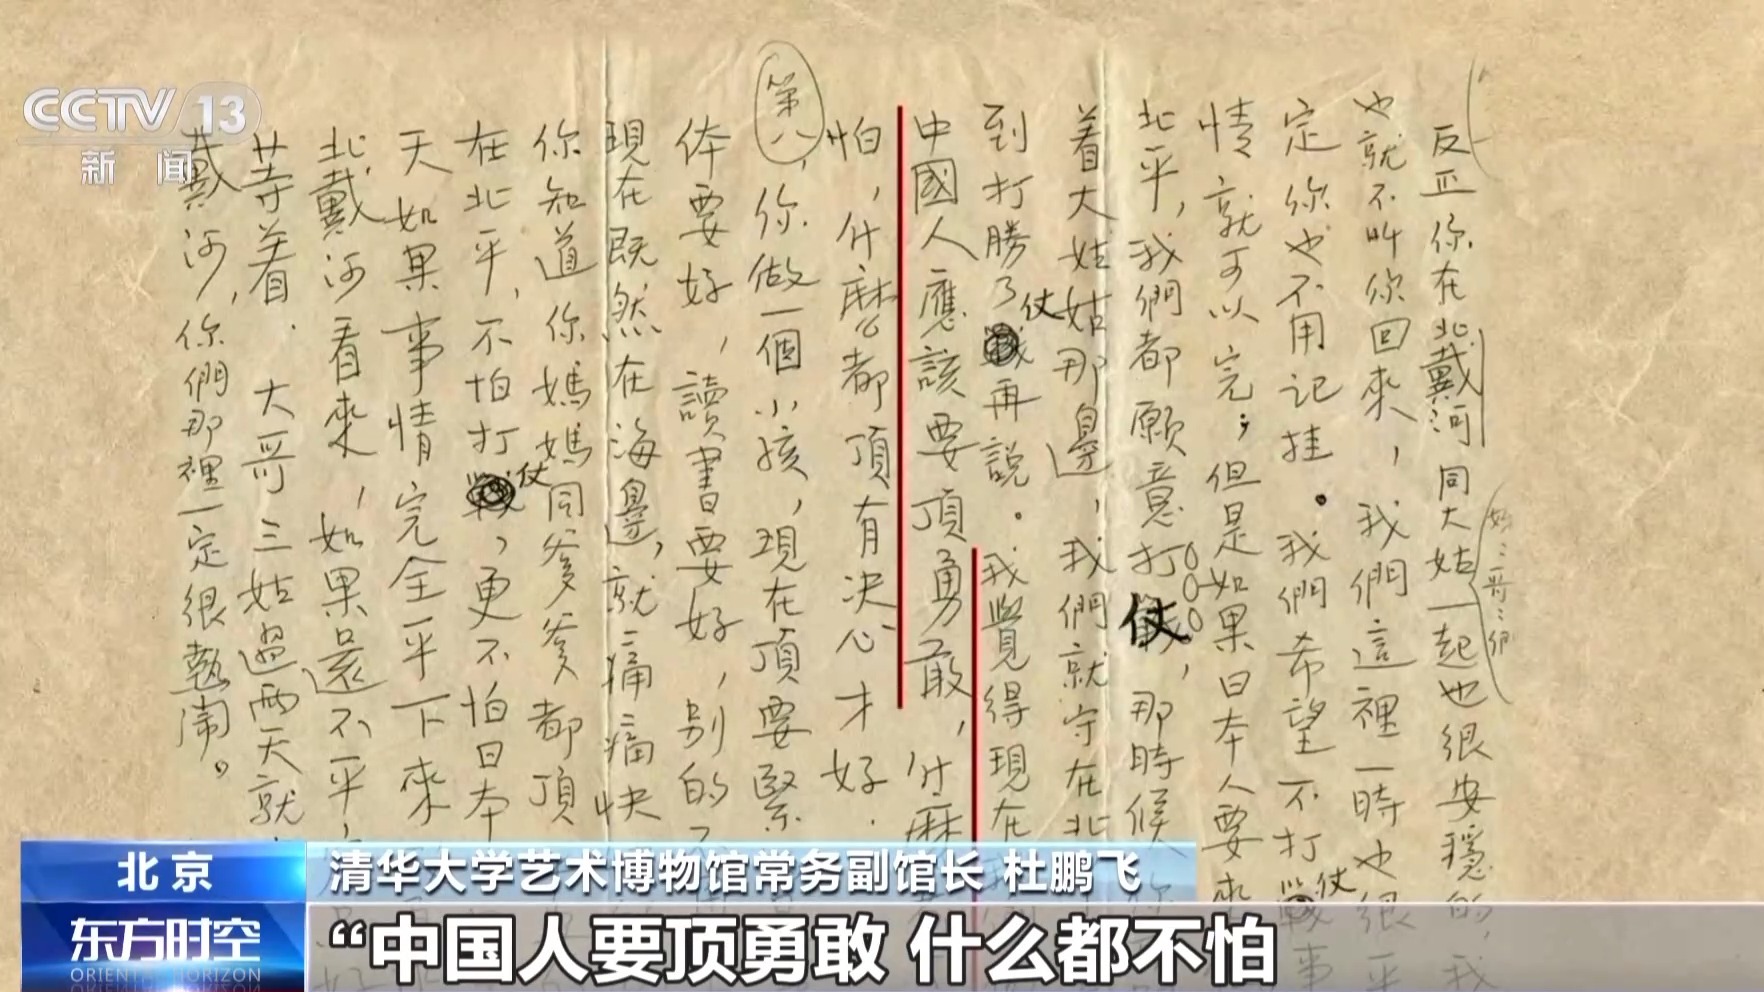 CCTV 13
新闻
反正你在北戴河同大姑一起也很安穩的,我
也就不叫你回來,我們這裡一時也很平
定你也不用记挂。我們希望不打仗事
情就可以完;但是如果日本人要來
北平,我們都願意打仗,那時候你
着大姑姑那邊,我們就守在北
到打勝了仗再説。我覺得現在我
中國人應該要頂勇敢,什麽
怕,什麽都頂有决心才好.
第八,你做一個小孩,現在頂要緊
体要好,讀書要好,別的不
現在既然在海邊,就痛痛快
你知道你媽媽同爹爹都頂
在北平,不怕打仗,更不怕日本
天如果事情完全平下來
北戴河看來,如果還不平
等着.大哥三姑過两天就
戴河,你們那裡一定很熱鬧。
北京
清华大学艺术博物馆常务副馆长 杜鹏飞
东方时空
ORIENTAL HORIZON
“中国人要顶勇敢 什么都不怕